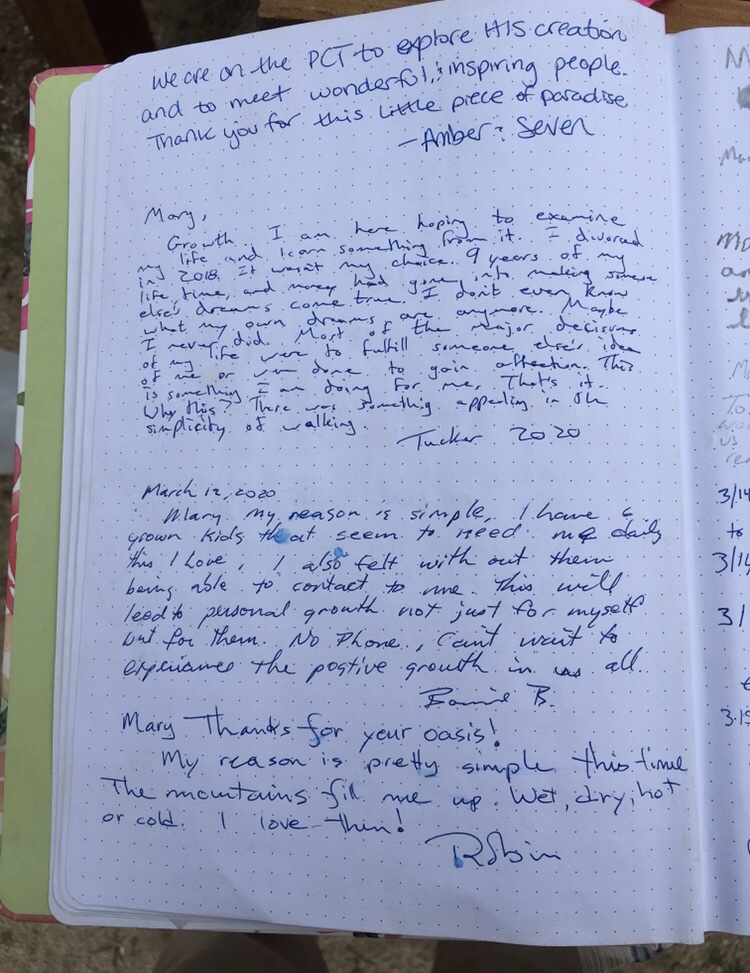 We are on the PCT to explore HIS creation
and to meet wonderful, inspiring people.
Thank you for this little piece of paradise
- Amber & Seven
Mary,
Growth. I am here hoping to examine
my life and learn something from it. I divorced
in 2018. It wasn't my choice. 9 years of my
life, time, and money had gone into making someone
else's dreams come true. I don't even know
what my own dreams are anymore. Maybe
I never did. Most of the major decisions
of my life were to fulfill someone else's idea
of me or were done to gain affection. This
is something I am doing for me. That's it.
Why this? There was something appealing in the
simplicity of walking.
Tucker 2020
March 12, 2020
Mary my reason is simple, I have 6
grown kids that seem to need me daily
this I Love, I also felt with out them
being able to contact to me. This will
lead to personal growth not just for myself
but for them. No Phone, Can't wait to
experiance the postive growth in us all.
B.
Mary Thanks for your oasis!
My reason is pretty simple this time
The mountains fill me up. Wet, dry, hot
or cold. I love them!
Robin
3/14
to
3/14
3/1
3.15